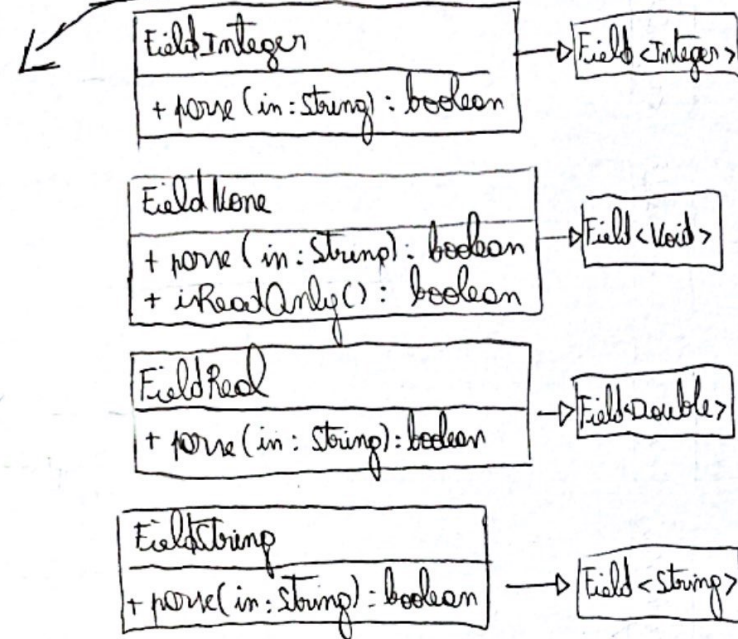 FieldInteger
+ parse (in: String): boolean
Field<Integer>
FieldNone
+ parse (in: String): boolean
+ isReadOnly(): boolean
Field<Void>
FieldReal
+ parse (in: String): boolean
Field<Double>
FieldString
+ parse (in: String): boolean
Field<String>